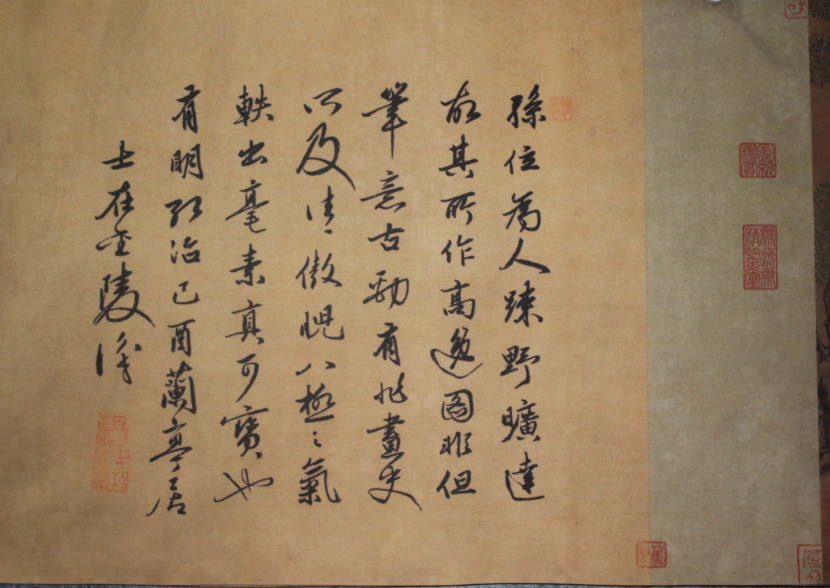 孫位為人踈野曠達
故其所作高逸圖非但
筆意古勁有非畫史
所及傲睨八極之氣
軼出毫素真可寶也
有明弘治己酉蘭亭居
士在金陵識